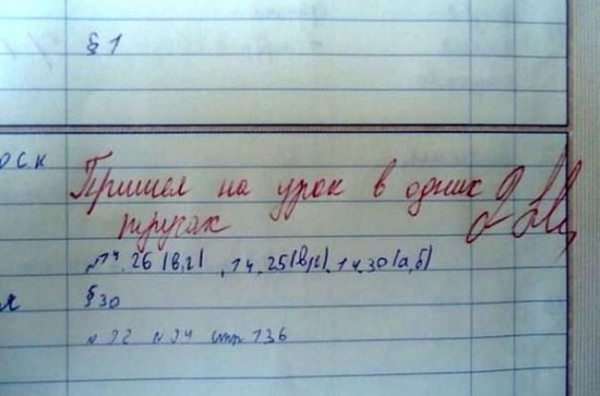 § 1
оск
Пришел на урок в одних
трусах
№ 14.26 (в,г), 14.25 (в,г), 14.30 (а,б)
я
§ 30
№ 92 № 94 стр 136